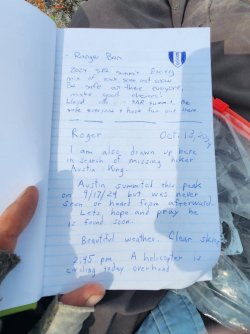 - Ranger Ben
2024 5th summit
mix of rock some ice snow
Be safe out there everyone,
make good choices!
safe everyone & have fun out there
Roger Oct. 13, 2024
I am also drawn up here
in search of missing hiker
Austin King.
Austin summited this peak
on 9/17/24 but was never
seen or heard from afterward.
Lets hope and pray he
is found soon.
Beautiful weather. Clear skies
2:45 pm. A helicopter is
circling today overhead.